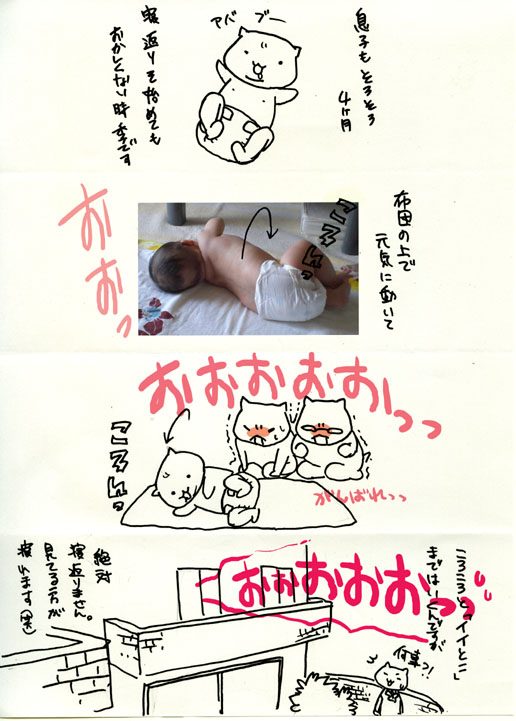 息子もそろそろ
4ヶ月
アバ
ブー
寝返りを始めても
おかしくない時季です
布団の上で
元気に動いて
ころんっ
おおっ
おおおおおっっ
ころんっ
がんばれっっ
ころころと「イイとこ」
まではいくんですが
おおおおおっっ
何事っ!
絶対
寝返りません。
見てる方が